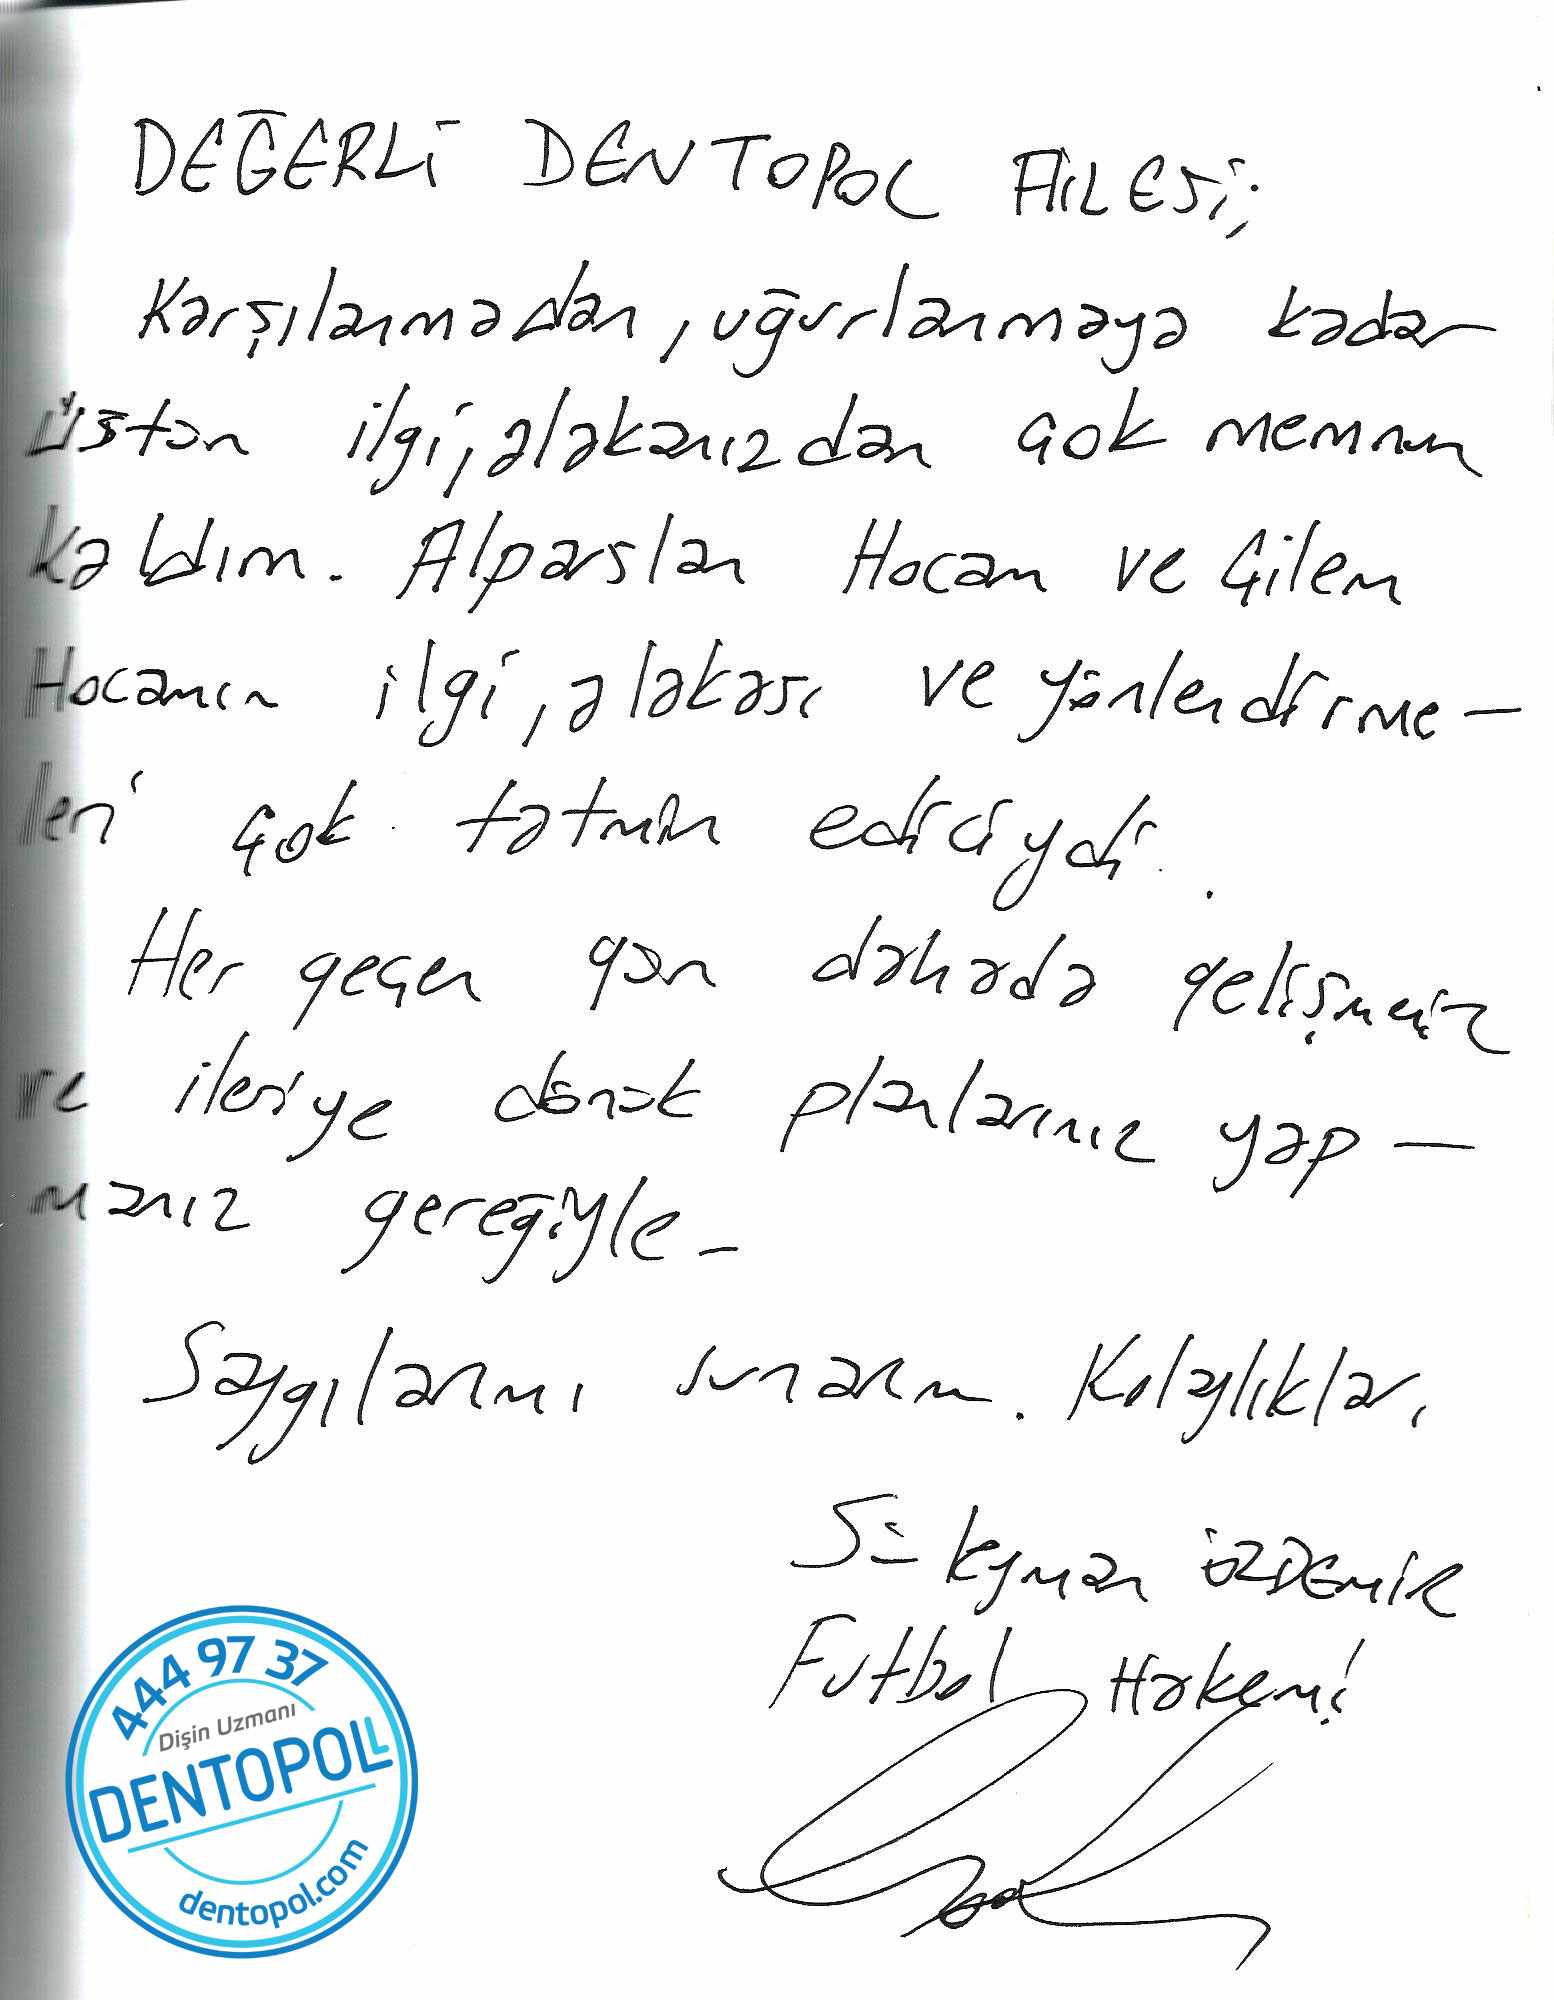 DEĞERLİ DENTOPOL AİLESİ;
Karşılanmadan, uğurlanmaya kadar
üstün ilgi, alakanızdan çok memnun
kaldım. Alparslan Hocam ve Çilem
Hocamın ilgi, alakası ve yönlendirme-
leri çok tatmin ediciydi.
Her geçen gün dahada gelişmeniz
ve ileriye dönük planlarınız yap-
manız gereğiyle-
Saygılarımı sunarım. Kolaylıklar.
Süleyman ÖZDEMİR
Futbol Hakemi
444 97 37
Dişin Uzmanı
DENTOPOL
dentopol.com